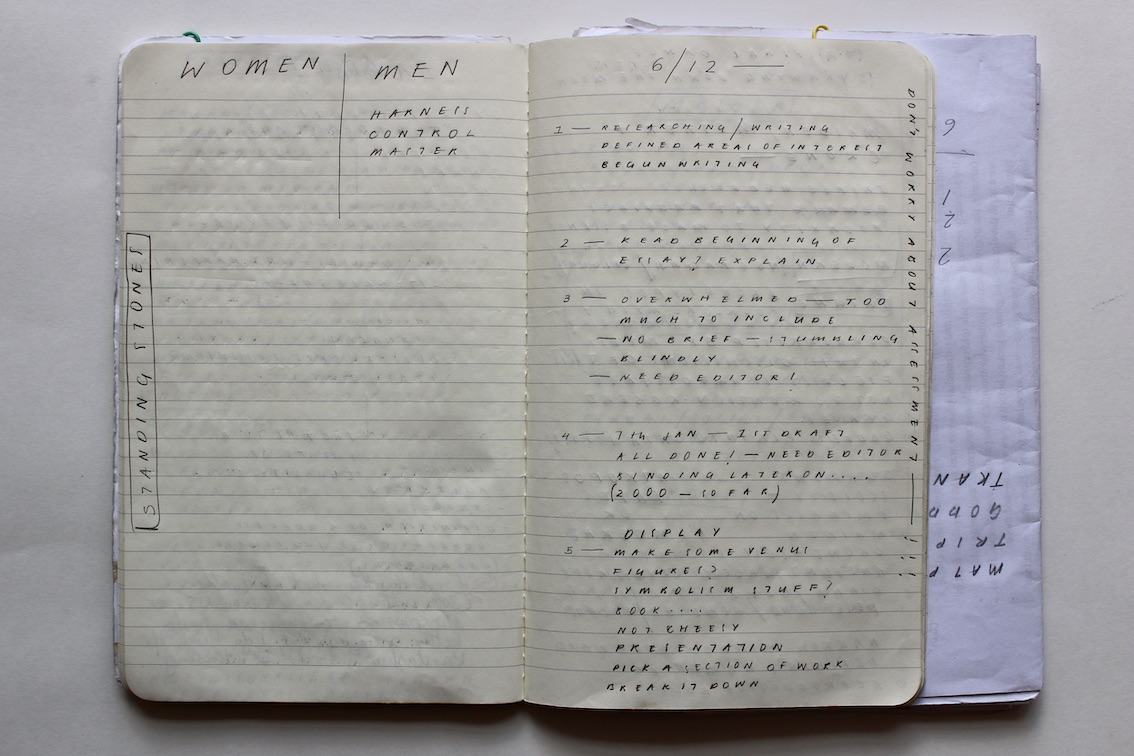 WOMEN
MEN
HARNESS
CONTROL
MASTER
STANDING STONES
6/12 —
1 — RESEARCHING / WRITING
DEFINED AREAS OF INTEREST
BEGUN WRITING
2 — READ BEGINNING OF
ESSAY? EXPLAIN
3 — OVERWHELMED — TOO
MUCH TO INCLUDE
— NO BRIEF — STUMBLING
BLINDLY
— NEED EDITOR!
4 — 7TH JAN — 1ST DRAFT
ALL DONE! — NEED EDITOR
BINDING LATER ON....
(2000 — SO FAR)
DISPLAY
5 — MAKE SOME VENUS
FIGURES?
SYMBOLISM STUFF?
BOOK....
NOT CHEESY
PRESENTATION
PICK A SECTION OF WORK
BREAK IT DOWN
DON'T WORRY ABOUT ASSESSMENT — !!!
6
1
2
2
TRIP